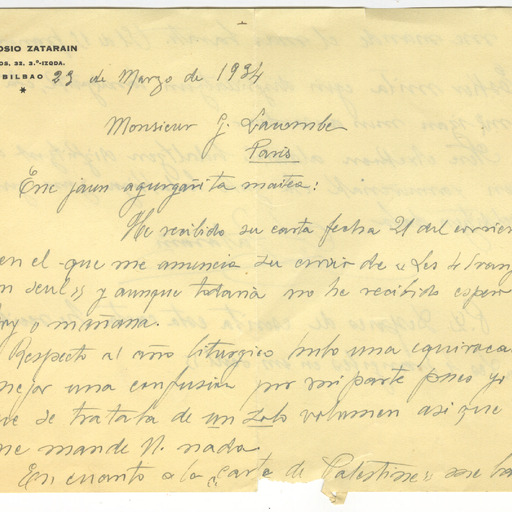 OSIO ZATARAIN
OS, 32, 3.º-IZQDA.
BILBAO 23 de Marzo de 1934
Monsieur G. Lacombe
Paris
Ene jaun agurgarita maitea:
He recibido su carta fecha 21 del corrien
en el que me anuncia su envio de "Les 4
y aunque todavia no he recibido esper
hoy o mañana.
Respecto al año liturgico hubo una equivoca
mejor una confusion por mi parte pues yo
que se trataba de un solo volumen asi que
me mande V. nada.
En cuanto a la "Carte de Palestine"